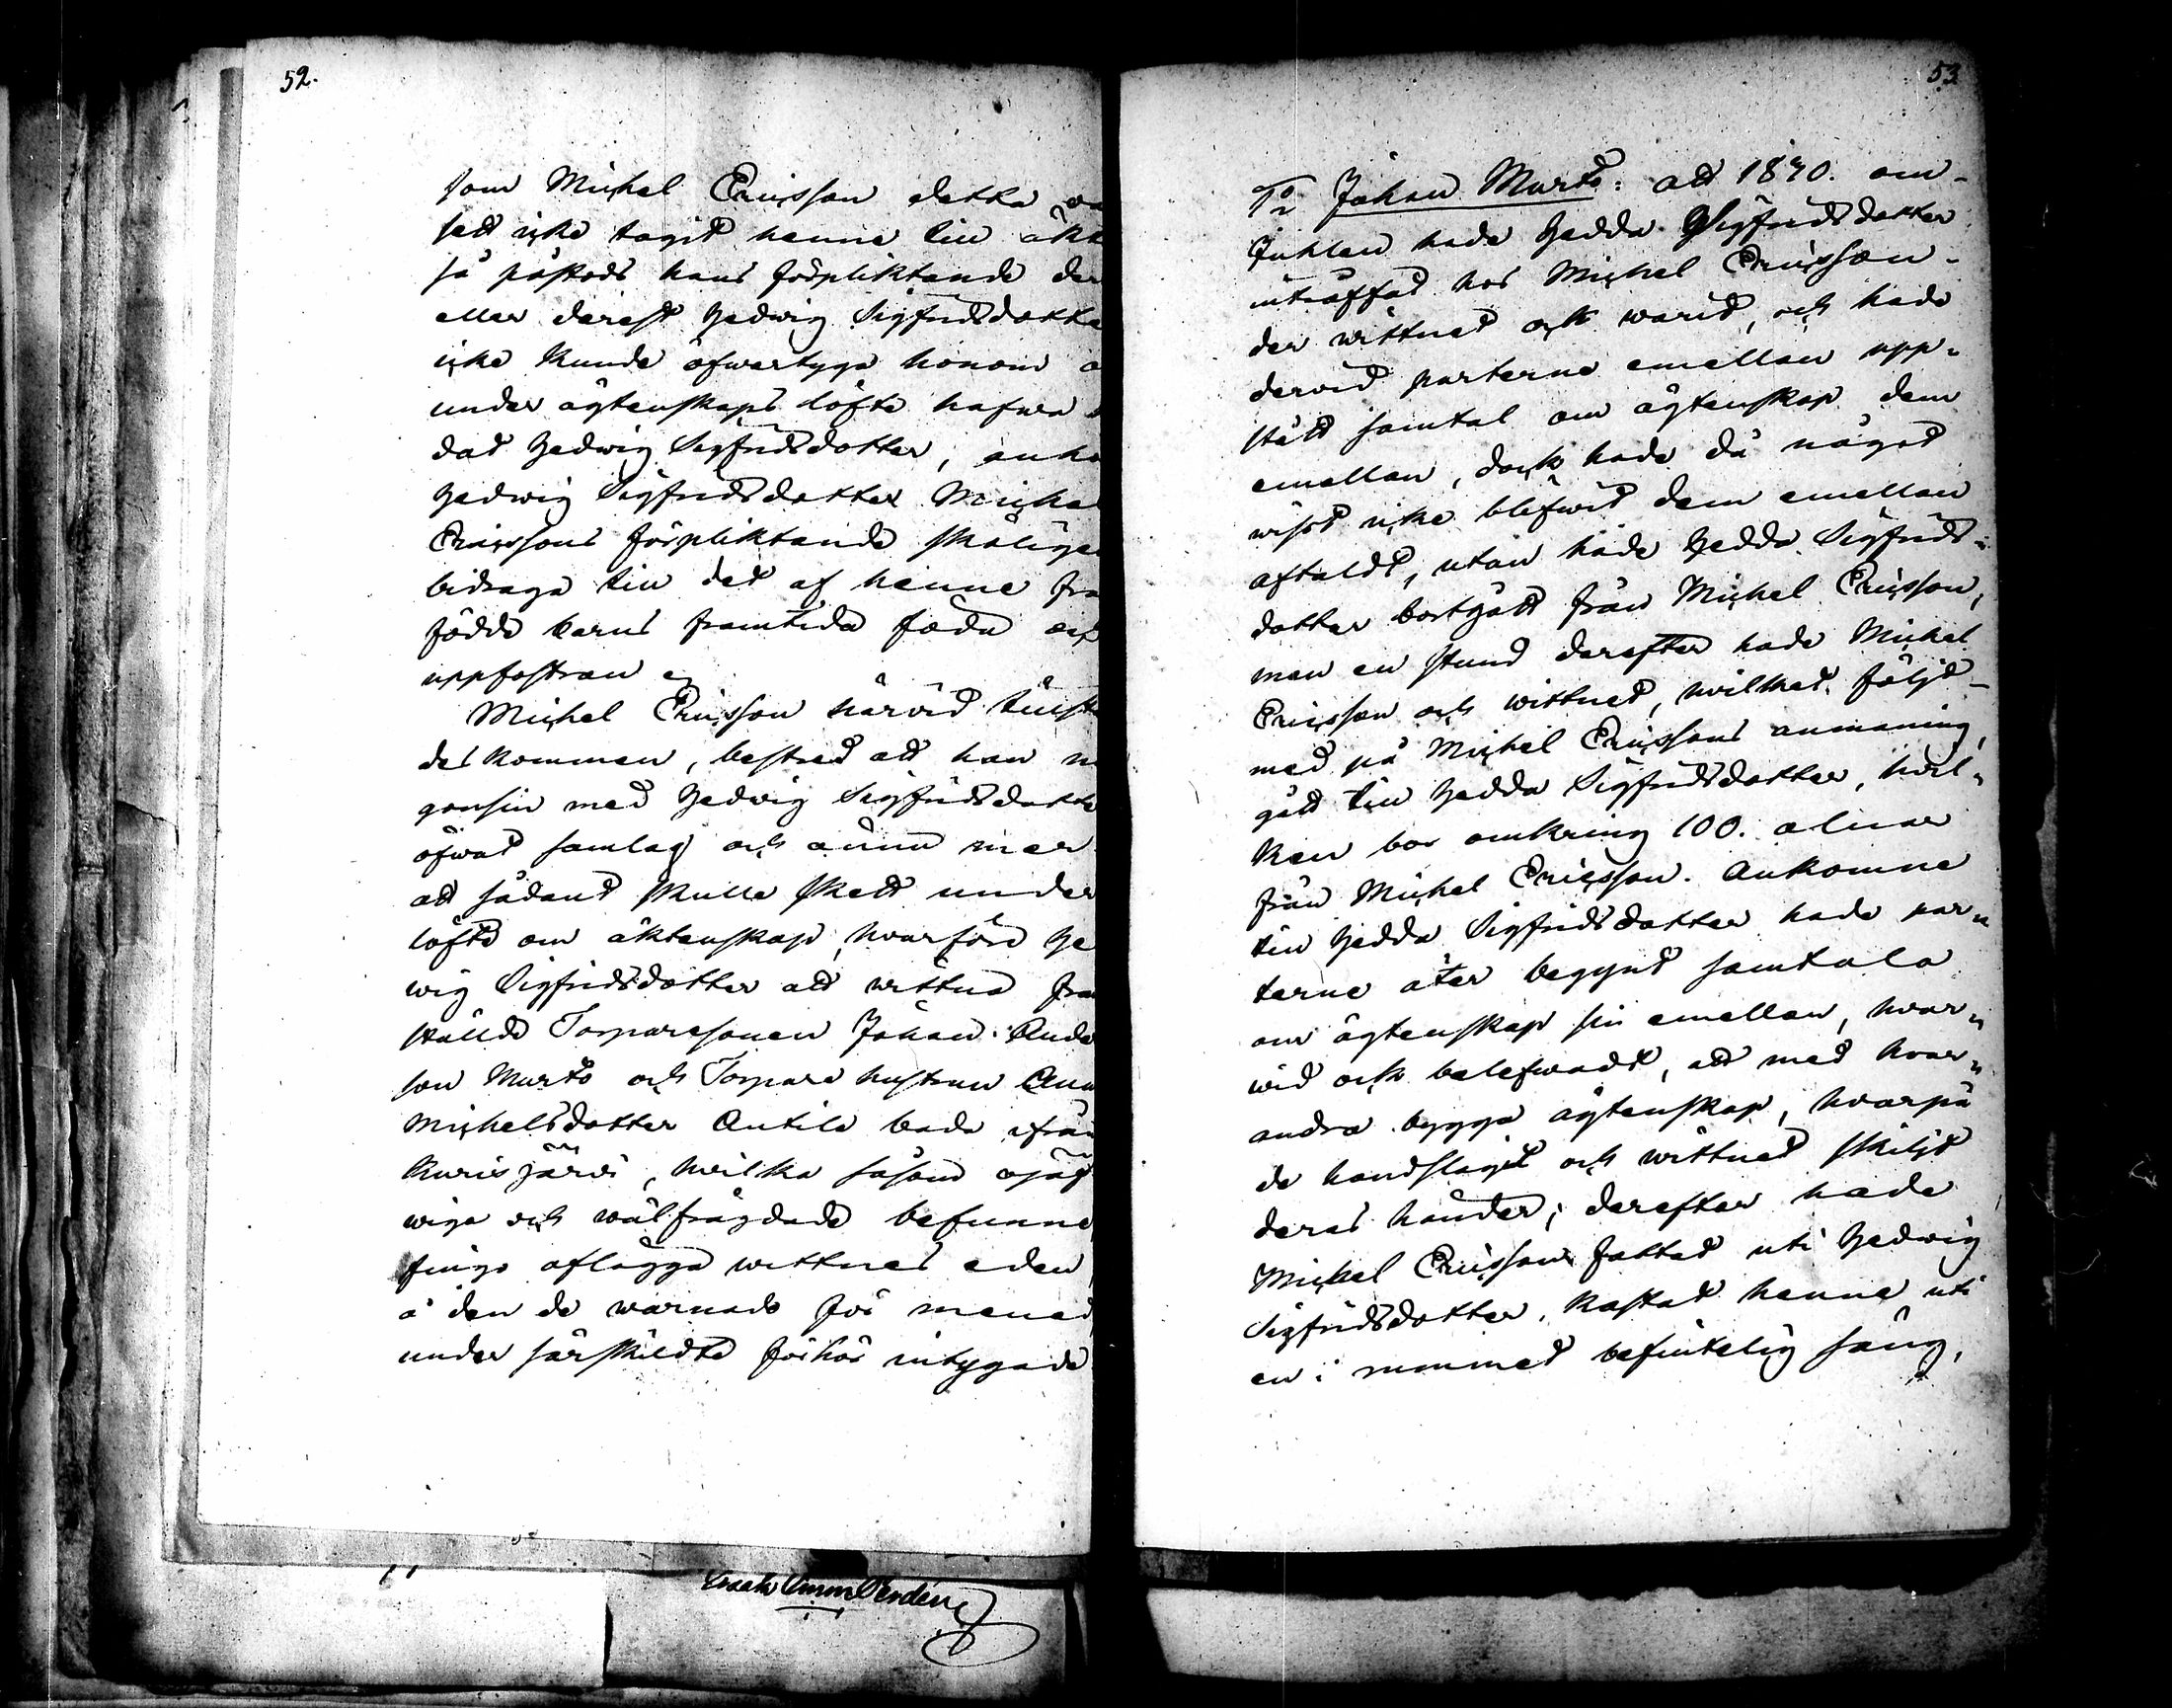 52.
som Michel Ericsson detta oa
sedt icke tagit henne till äkt
så påstods hans förpliktande der
eller derest Hedwig Sigfridsdotte
icke kunde öfwertyga honom a
under ägtenskaps löfte hafwa
dat Hedwig Sigfridsdotter, anhö
Hedwig Sigfridsdotter Michel
Ericssons förpliktande skäligen
bidraga till det af henne fra
födde barns framtida föda och
uppfostran
Michel Ericsson härvid tillsta
des kommen, bestred att han n
gonsin med Hedwig Sigfridsdotte
öfwat samlag och ännu mer
att sådant skulle skett under
löfte om äktenskap, hvarföre He
wig Sigfridsdotter att wittna fra
stälde Torparesonen Johan Ande
son Murto och Torpare hustrun Ann
Michelsdotter Antila bada ifrån
Kurisjärvi, hvilka såsom ojäf
wiga och wälfrägdade befunne
fingo aflägga wittnes eden,
å den de warnade för mened,
under särskildte förhör intygade
53
1o Johan Murto: att 1840. om
Juhlen hade Hedda Sigfridsdotter
inträffat hos Michel Ericsson
der wittnet ock warit, och hade
dervid parterne emellan upp-
stått samtal om ägtenskap dem
emellan, dock hade då något
wist icke blifwit dem emellan
aftaldt, utan hade Hedda Sigfrids-
dotter bortgått från Michel Ericsson,
men en stund derefter hade Michel
Ericsson och wittnet, hvilket följt
med på Michel Ericssons anmaning,
gått till Hedda Sigfridsdotter, hvil-
ken bor omkring 100. alnar
från Michel Ericsson. Ankomne
till Hedda Sigfridsdotter hade par-
terne åter begynt samtala
om ägtenskap sin emellan, hvar-
wid ock belefwadt, att med hvar-
andra bygga ägtenskap, hvarpå
de handslagit och wittnet skiljt
deras händer; derefter hade
Michel Ericsson fattat uti Hedwig
Sigfridsdotter, kastat henne uti
en i rummet befintelig säng,